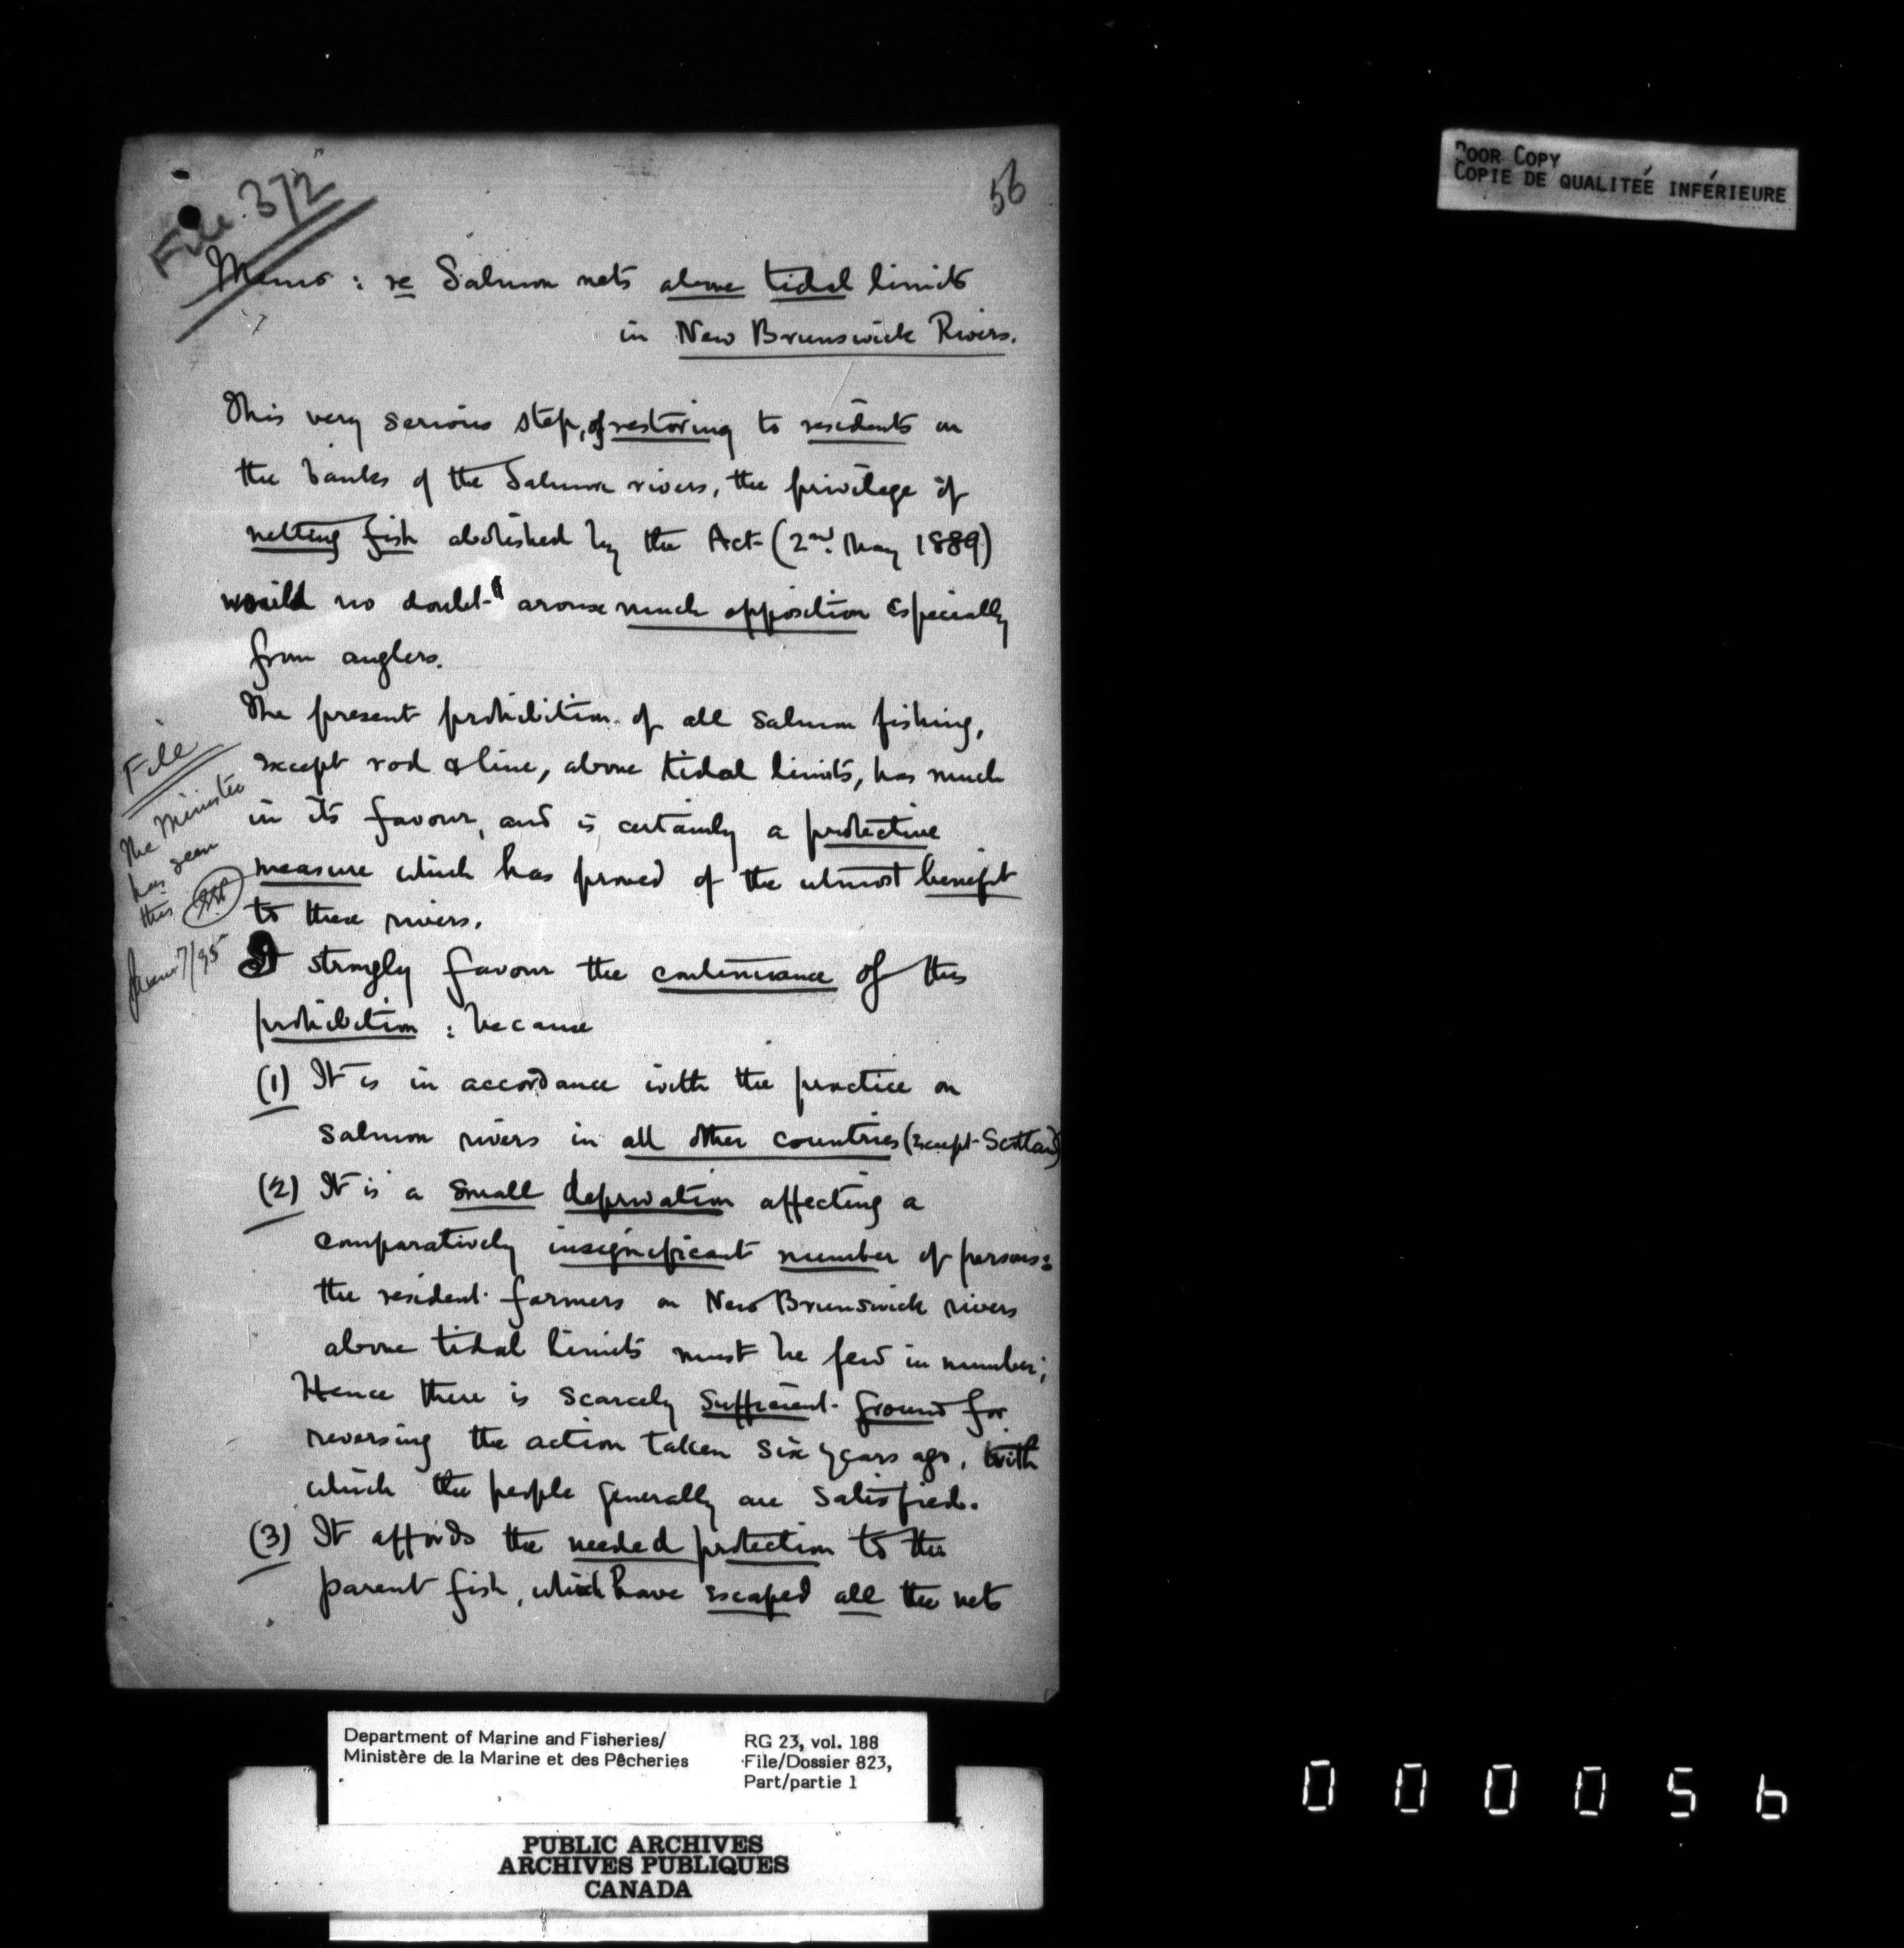 File. 372
56
Memo : re Salmon nets above tidal limits
in New Brunswick Rivers.
This very serious step, of restoring to residents on
the banks of the Salmon rivers, the privilege of
netting fish abolished by the Act (2nd. May 1889)
would no doubt arouse much opposition especially
from anglers.
The present prohibition of all salmon fishing,
except rod & line, above tidal limits, has much
in its favour, and is certainly a protective
measure which has proved of the utmost benefit
to these rivers.
File
The Minister
has seen
this
7/95
I strongly favour the continuance of this
prohibition : because
(1) It is in accordance with the practice on
salmon rivers in all other countries (except Scotland)
(2) It is a small deprivation affecting a
comparatively insignificant number of persons:
the resident farmers on New Brunswick rivers
above tidal limits must be few in number;
Hence there is scarcely sufficient ground for
reversing the action taken six years ago, with
which the people generally are satisfied.
(3) It affords the needed protection to the
parent fish, which have escaped all the nets
POOR COPY
COPIE DE QUALITÉE INFÉRIEURE
Department of Marine and Fisheries/
Ministère de la Marine et des Pêcheries
RG 23, vol. 188
File/Dossier 823,
Part/partie 1
PUBLIC ARCHIVES
ARCHIVES PUBLIQUES
CANADA
000056